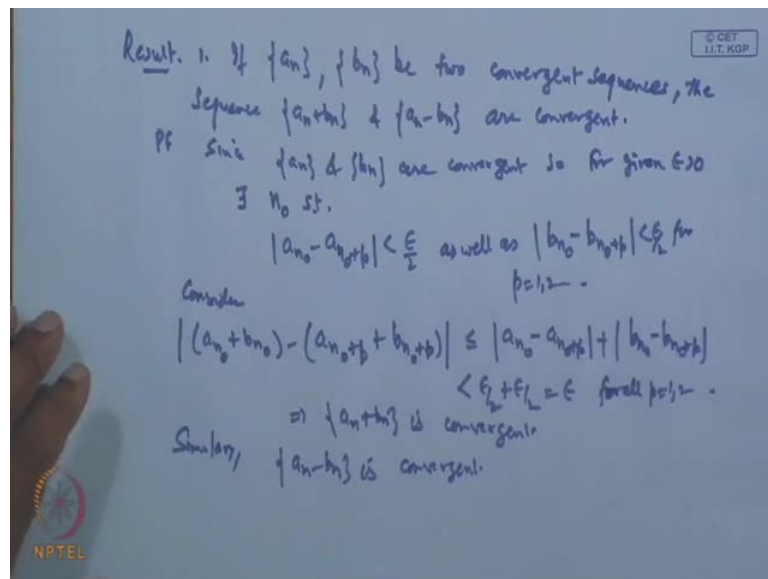 © CET
I.I.T. KGP
Result. 1. If {an}, {bn} be two convergent sequences, the
sequence {an+bn} & {an-bn} are convergent.
Pf Since {an} & {bn} are convergent so for given ε>0
∃ n₀ st.
|a_{n₀} - a_{n₀+p}| < ε/2 as well as |b_{n₀} - b_{n₀+p}| < ε/2 for
p=1,2 - .
Consider
|(a_{n₀} + b_{n₀}) - (a_{n₀+p} + b_{n₀+p})| ≤ |a_{n₀} - a_{n₀+p}| + |b_{n₀} - b_{n₀+p}|
< ε/2 + ε/2 = ε for all p=1,2 - .
⇒ {an+bn} is convergent.
Similarly, {an-bn} is convergent.
NPTEL